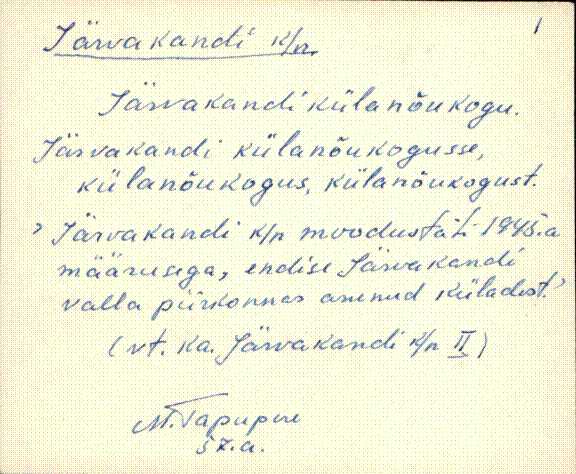 1
Järvakandi k/n.
Järvakandi külanõukogu.
Järvakandi külanõukogusse,
külanõukogus, külanõukogust.
› Järvakandi k/n moodustati 1945.a
määrusega, endise Järvakandi
valla piirkonnas asunud küladest.›
(vt. ka. Järvakandi k/n II)
M. Tapupere
57.a.